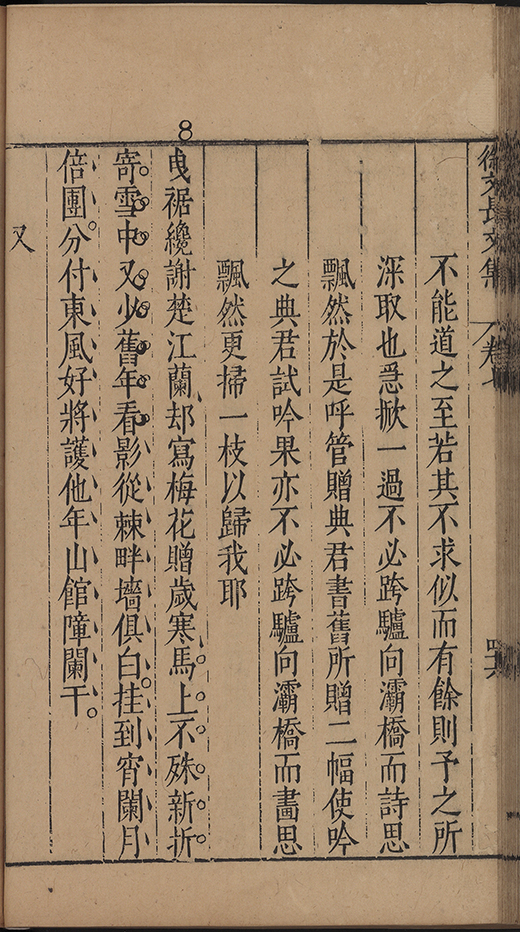 徐文長文集 卷七
不能道之至若其不求似而有餘則予之所
深取也惡掀一過不必跨驢向灞橋而詩思
飄然於是呼管贈典君書舊所贈二幅使吟
之典君試吟果亦不必跨驢向灞橋而畫思
飄然更掃一枝以歸我耶
曳裾纔謝楚江蘭却寫梅花贈歲寒馬上不殊新折
寄雪中又少舊年看影從棘畔墻俱白挂到宵闌月
倍團分付東風好將護他年山館障闌干
又
8